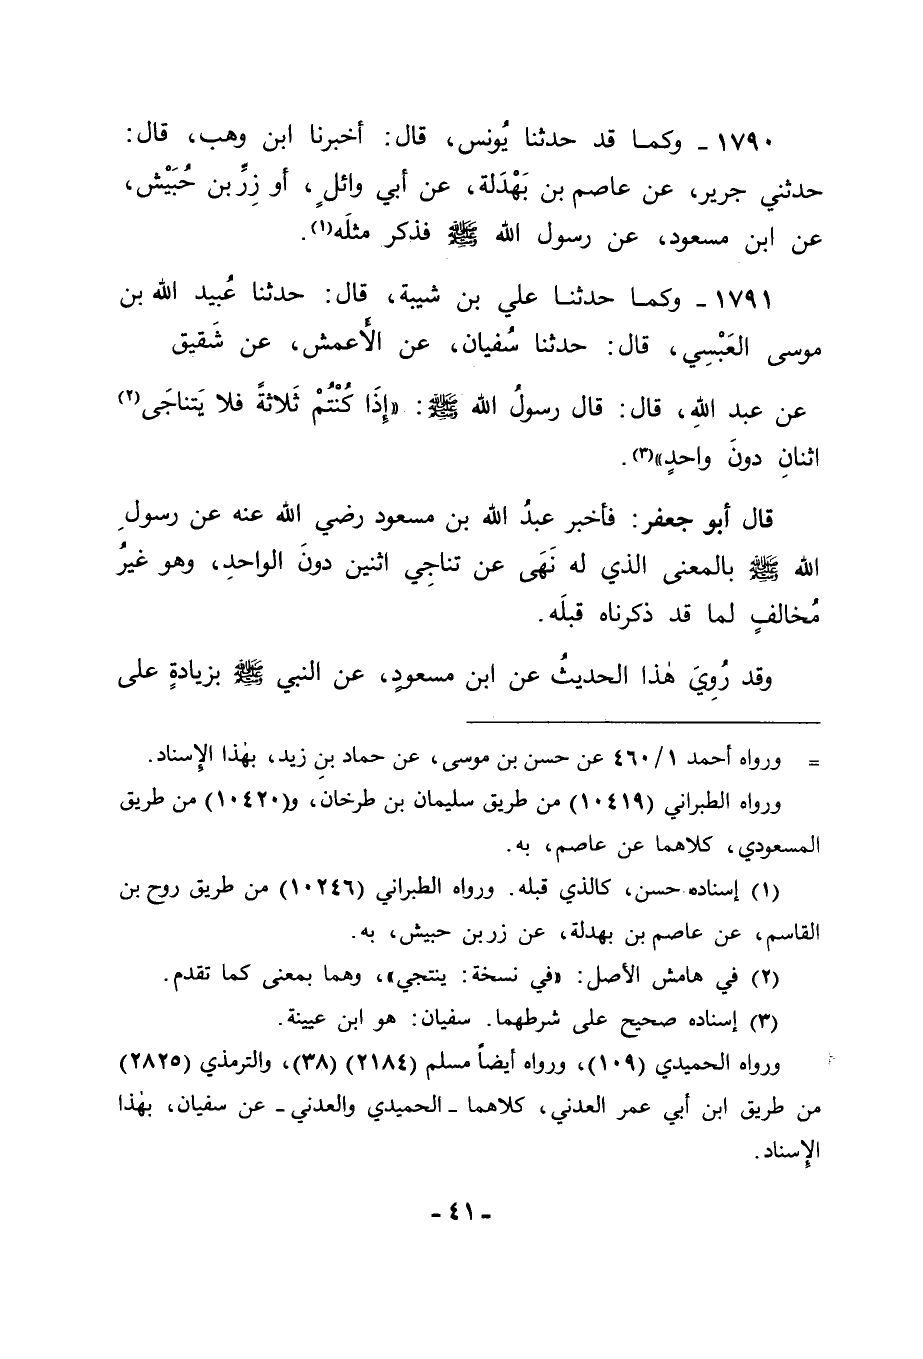 ١٧٩٠ ـ وكما قد حدثنا يُونس، قال: أخبرنا ابن وهب، قال:
حدثني جرير، عن عاصم بن بَهْدَلة، عن أبي وائلٍ، أو زِرِّ بن حُبَيْش،
عن ابن مسعود، عن رسول الله ﷺ فذكر مثلَه(١).
١٧٩١ ـ وكما حدثنا علي بن شيبة، قال: حدثنا عُبيد الله بن
موسى العَبْسِي، قال: حدثنا سُفيان، عن الأَعمش، عن شَقيق
عن عبد اللهِ، قال: قال رسولُ الله ﷺ: «إِذَا كُنْتُمْ ثَلاثةً فلا يَتناجَى(٢)
اثنانِ دونَ واحدٍ»(٣).
قال أبو جعفر: فأخبر عبدُ الله بن مسعود رضي الله عنه عن رسولِ
الله ﷺ بالمعنى الذي له نَهَى عن تناجِي اثنين دونَ الواحدِ، وهو غيرُ
مُخالفٍ لما قد ذكرناه قبلَه.
وقد رُوِيَ هٰذا الحديثُ عن ابن مسعودٍ، عن النبي ﷺ بزيادةٍ على
= ورواه أحمد ٤٦٠/١ عن حسن بن موسى، عن حماد بنِ زيد، بهٰذا الإِسناد.
ورواه الطبراني (١٠٤١٩) من طريق سليمان بن طرخان، و(١٠٤٢٠) من طريق
المسعودي، كلاهما عن عاصم، به.
(١) إسناده حسن، كالذي قبله. ورواه الطبراني (١٠٢٤٦) من طريق روح بن
القاسم، عن عاصم بن بهدلة، عن زر بن حبيش، به.
(٢) في هامش الأصل: «في نسخة: ينتجي»، وهما بمعنى كما تقدم.
(٣) إسناده صحيح على شرطهما. سفيان: هو ابن عيينة.
ورواه الحميدي (١٠٩)، ورواه أيضاً مسلم (٢١٨٤) (٣٨)، والترمذي (٢٨٢٥)
من طريق ابن أبي عمر العدني، كلاهما ـ الحميدي والعدني ـ عن سفيان، بهٰذا
الإِسناد.
ـ ٤١ ـ